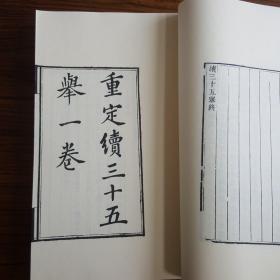 重定續三十五
舉一卷
續三十五舉終